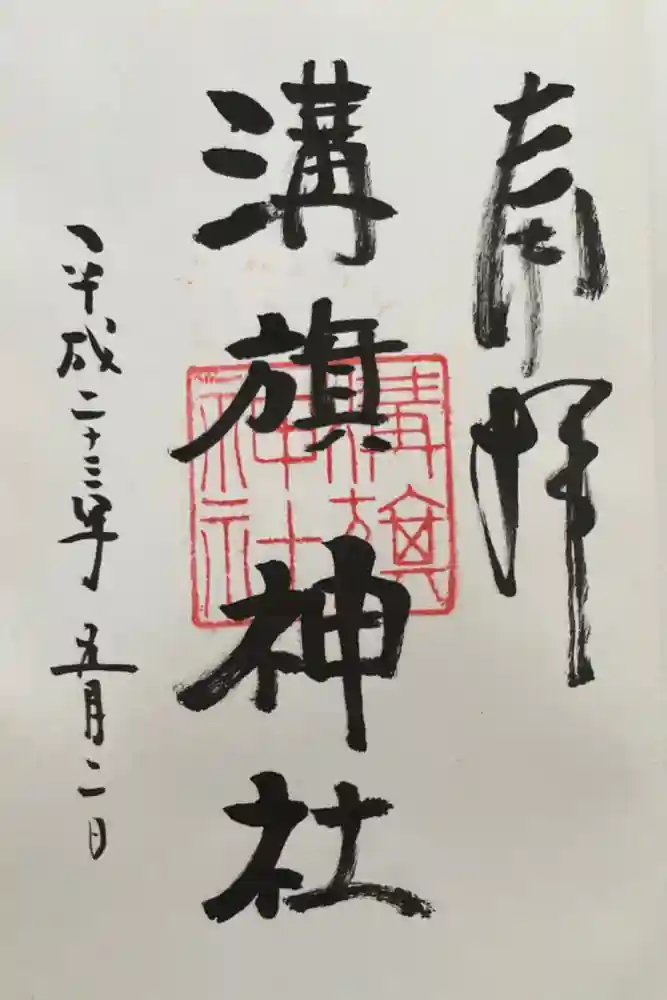 奉拝
溝旗神社
溝旗
神社
平成二十三年 五月二日